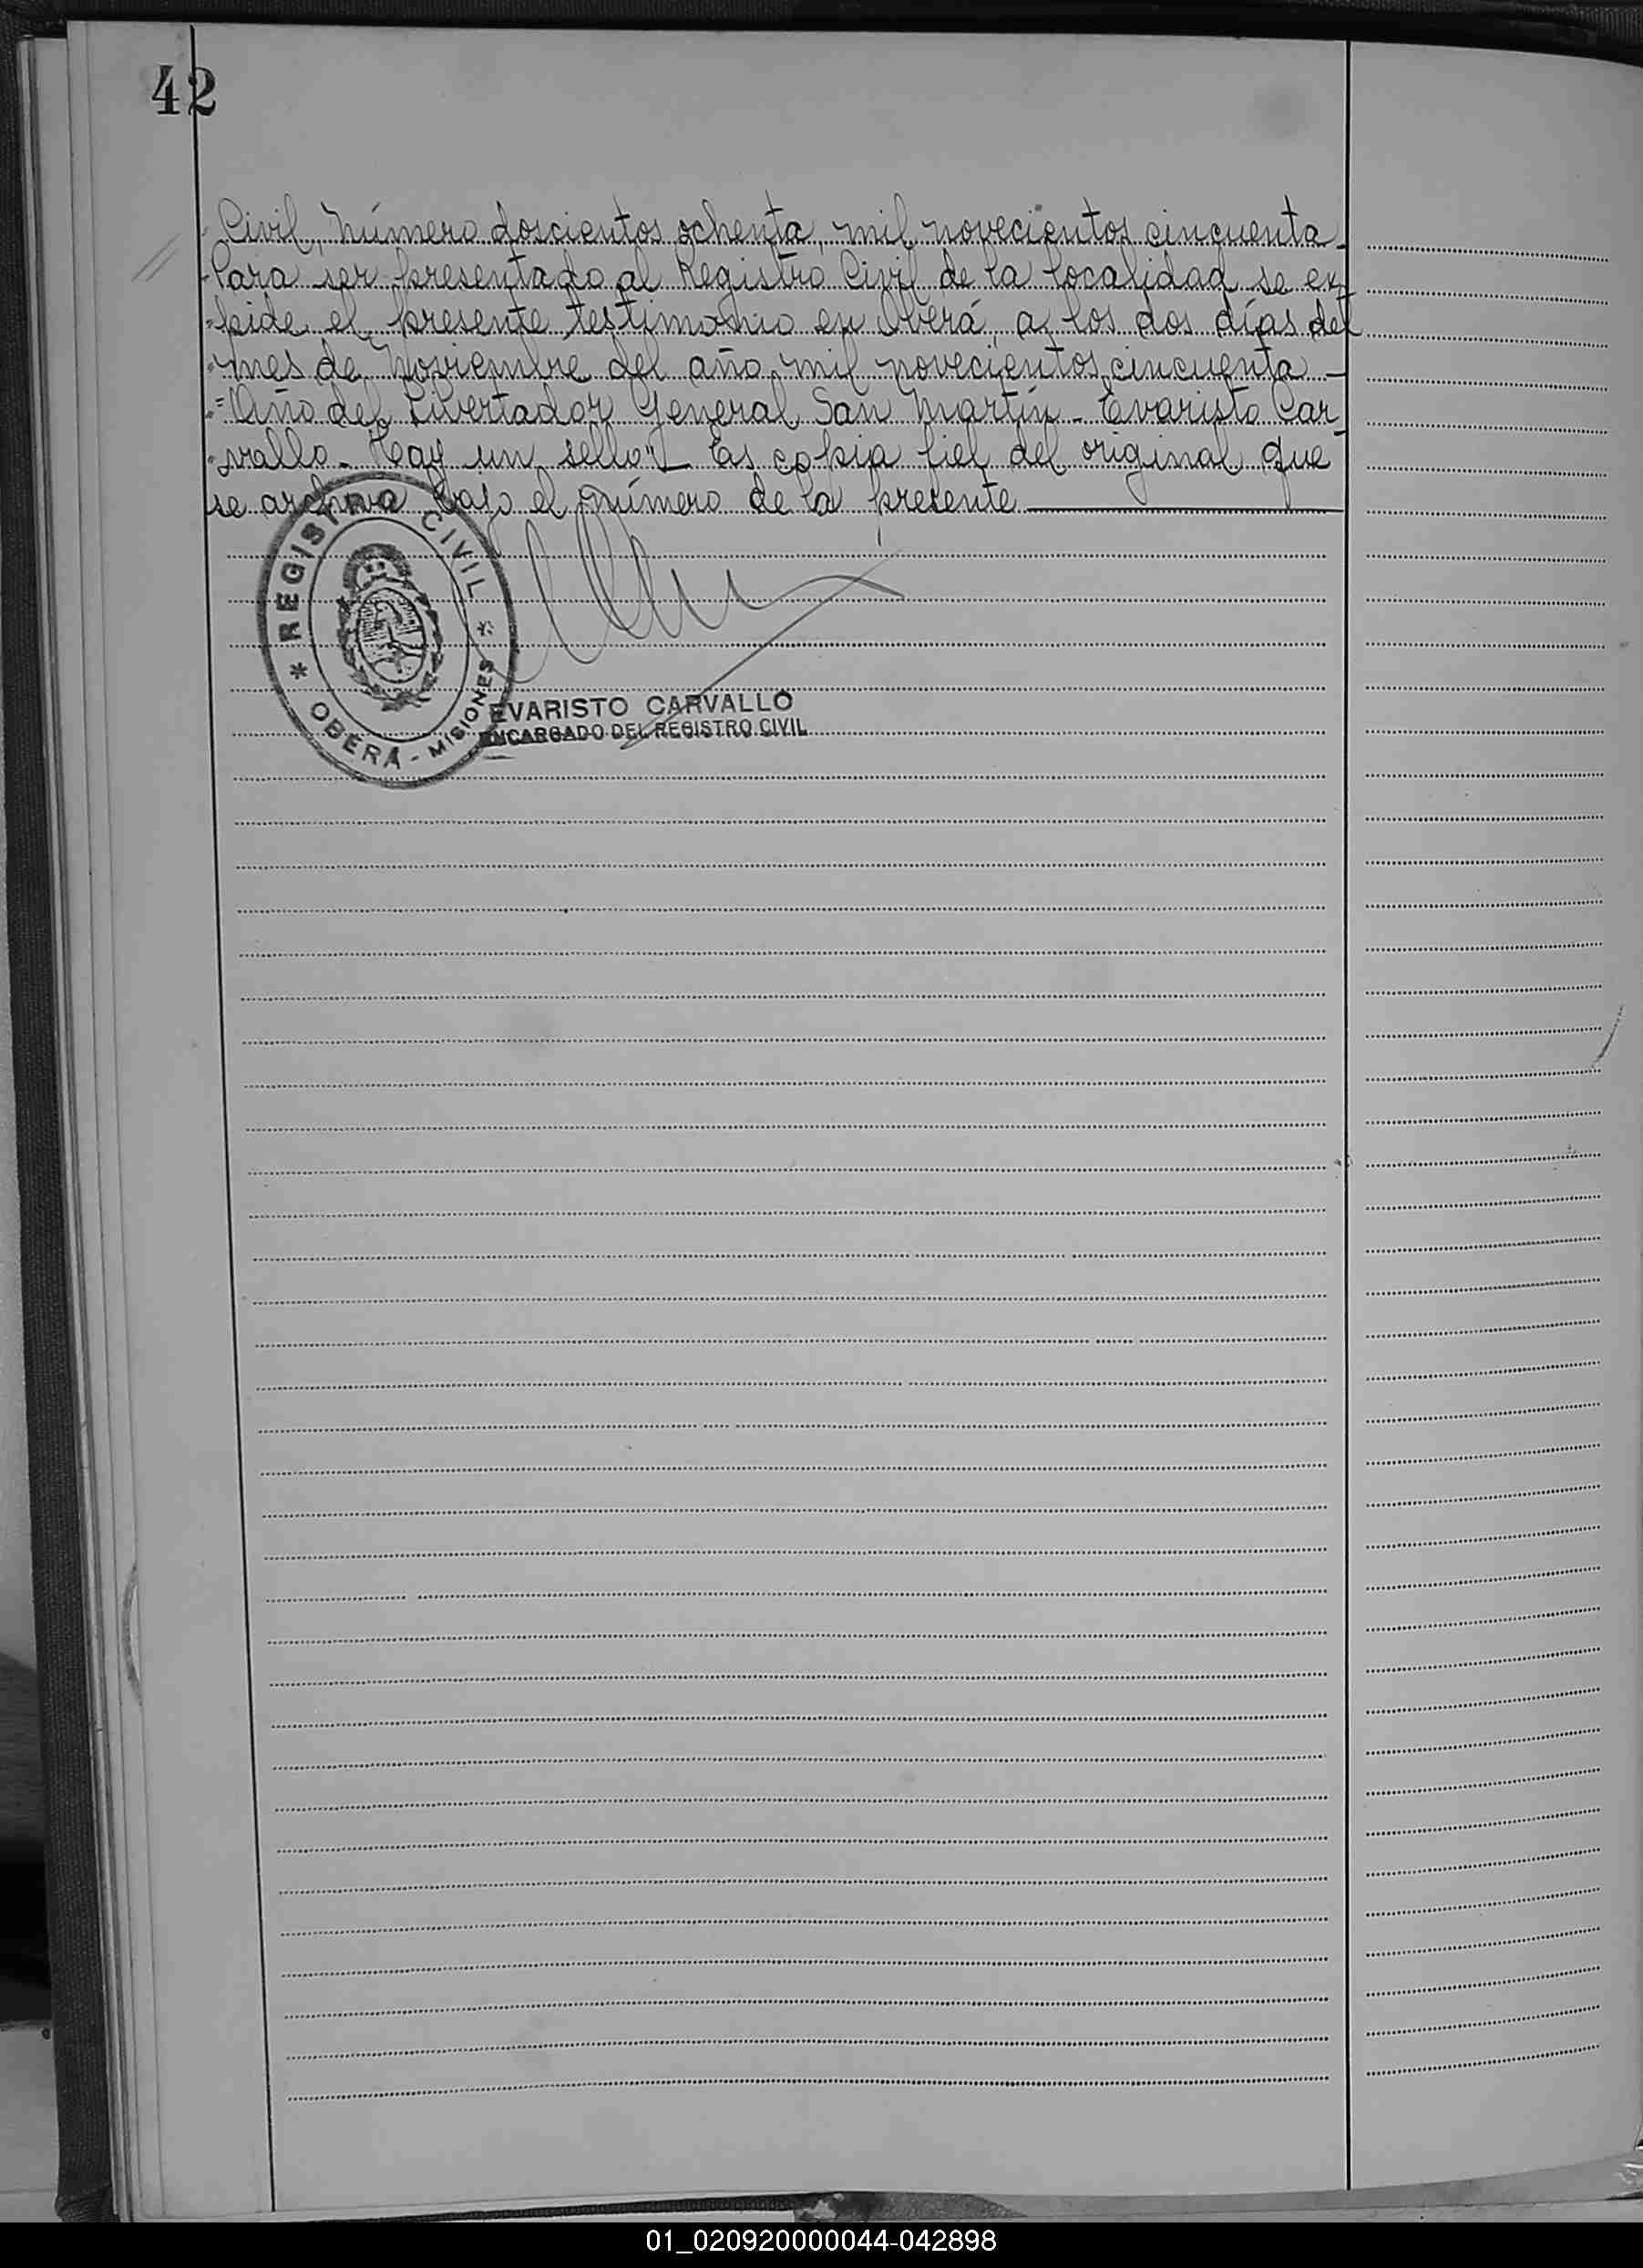 42
"Civil, Número doscientos ochenta, mil novecientos cincuenta.
"Para ser presentado al Registro Civil de la localidad se ex-
"pide el presente testimonio en Oberá, a los dos días del
"mes de Noviembre del año mil novecientos cincuenta -
"Año del Libertador General San Martín - Evaristo Car-
"vallo. Hay un sello". Es copia fiel del original que
se archiva bajo el número de la presente
REGISTRO CIVIL
* OBERÁ - MISIONES *
EVARISTO CARVALLO
ENCARGADO DEL REGISTRO CIVIL
01_020920000044-042898